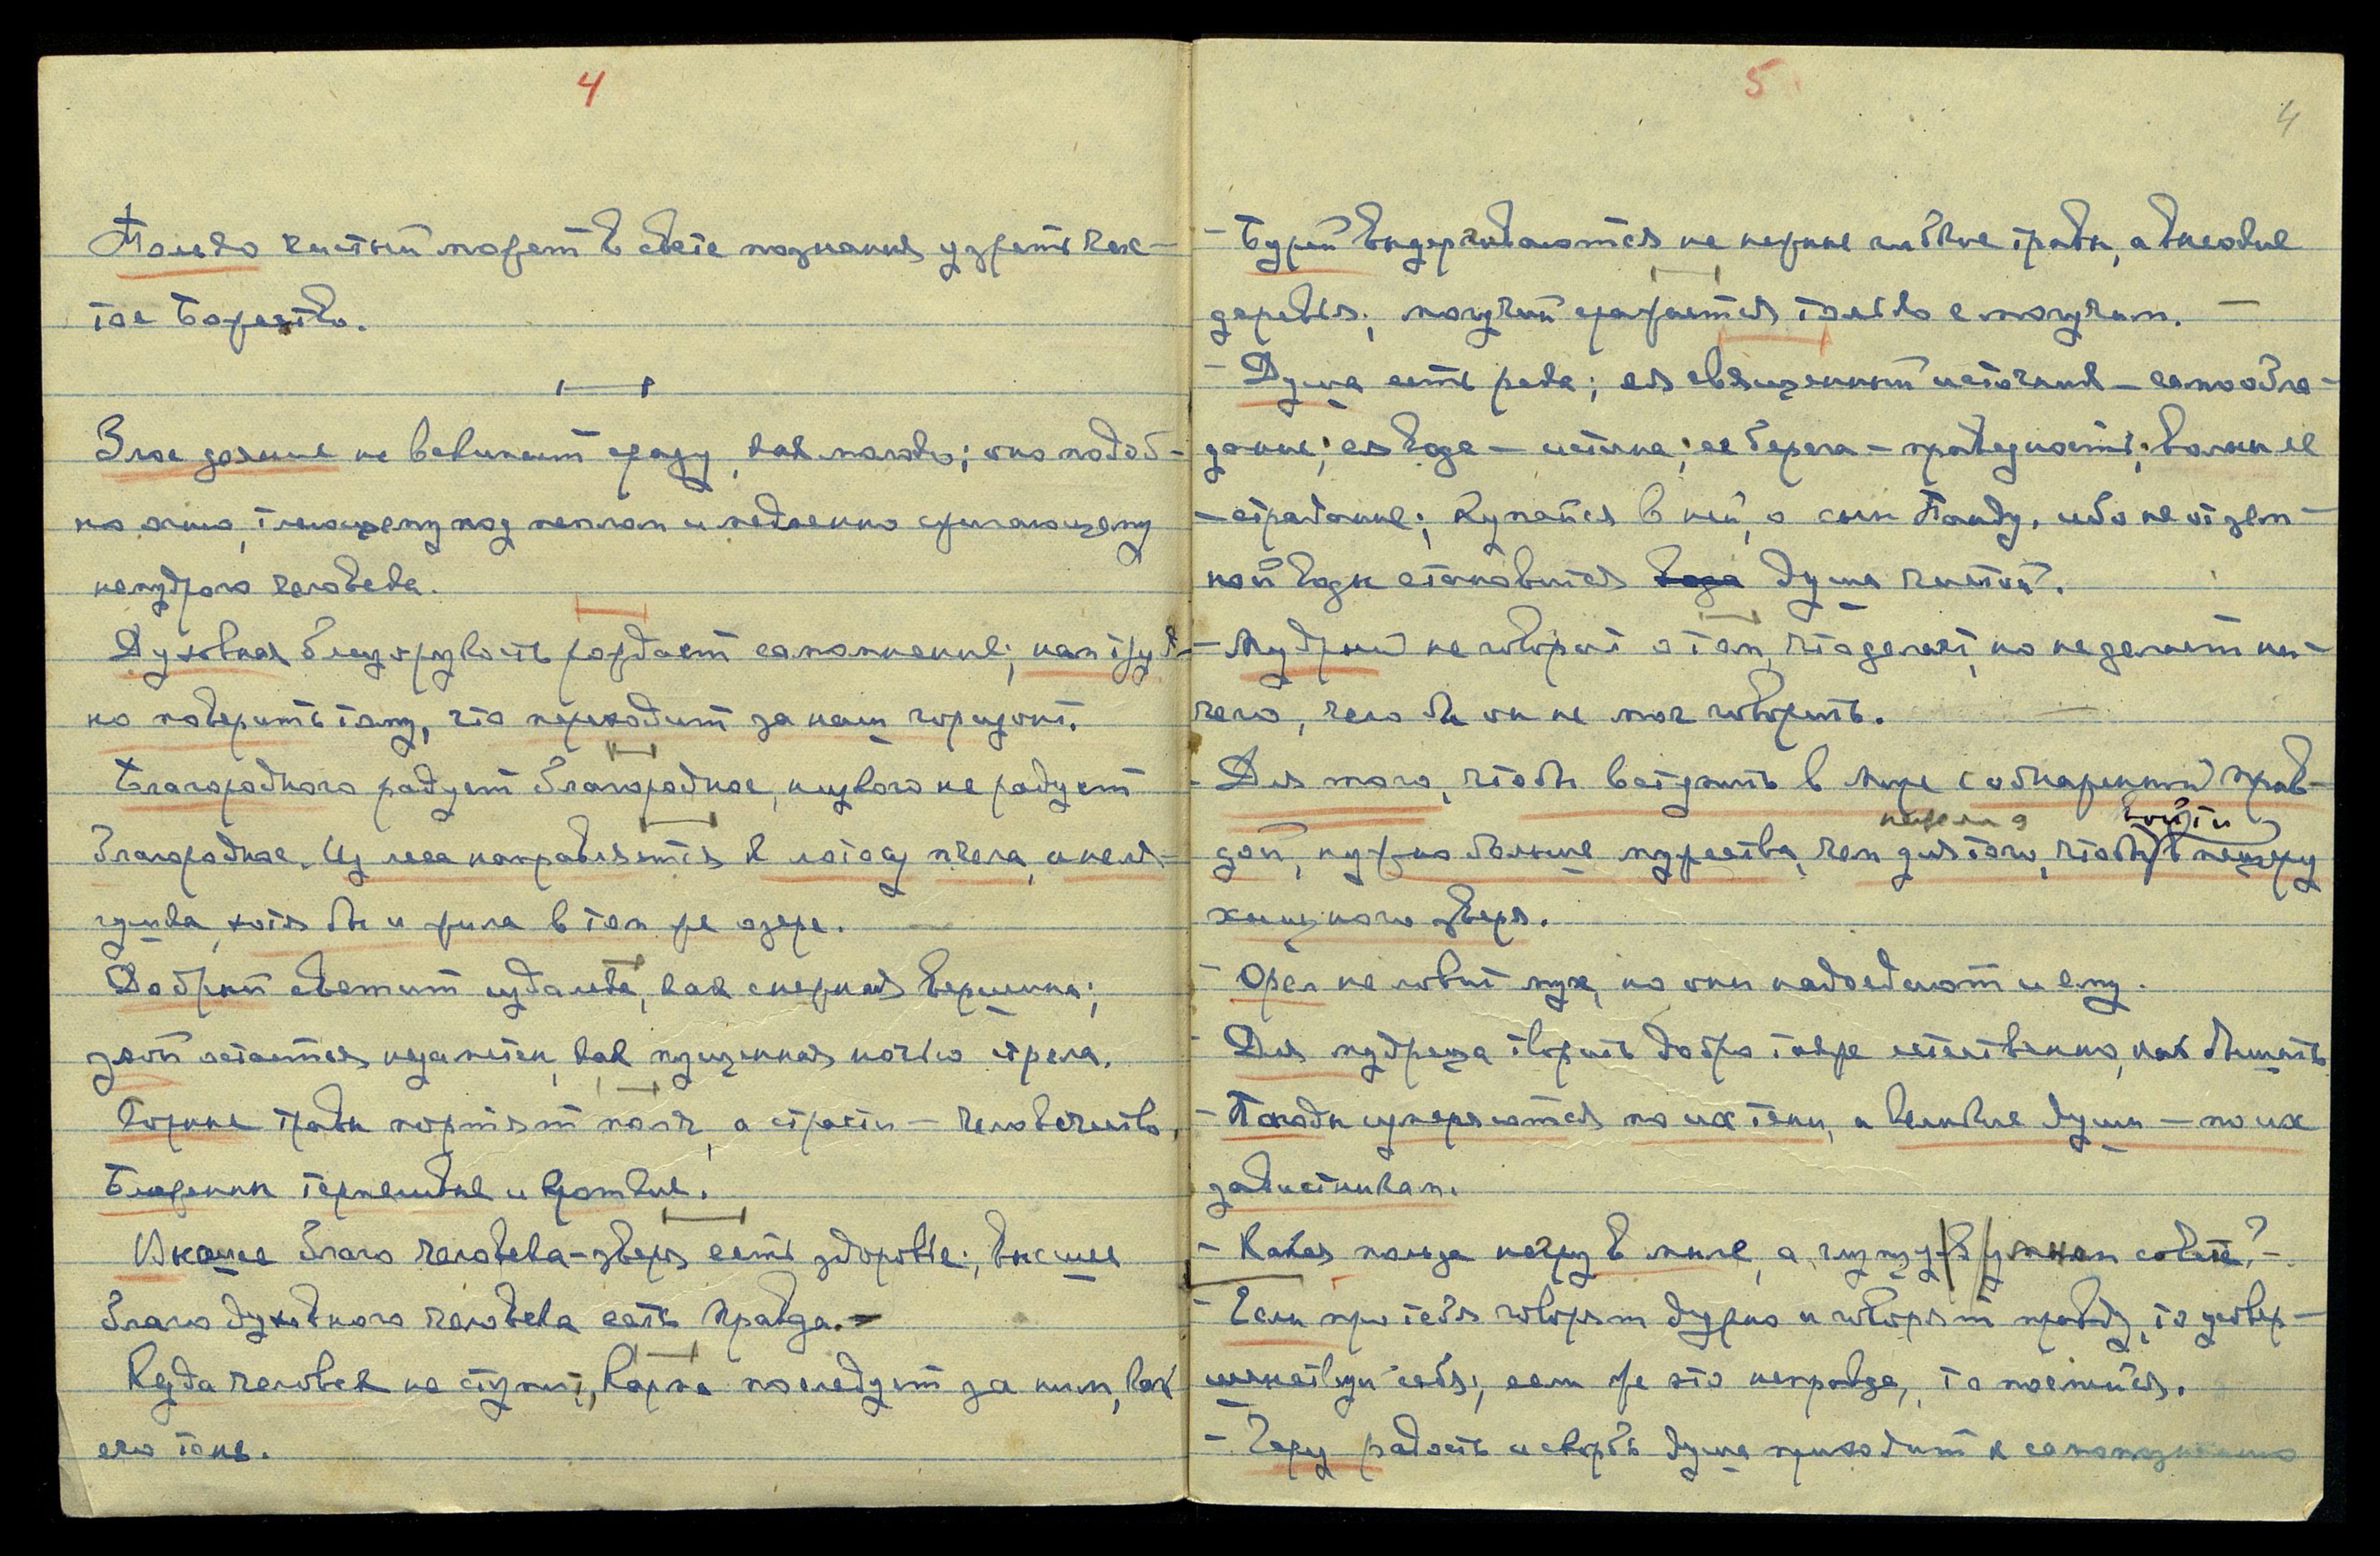 4
Только чистый может в свете познания узреть чис-
тое Божество.
Злое деяние не вскипает сразу, как молоко; оно подоб-
но огню, тлеющему под пеплом и медленно сжигающему
немудрого человека.
Духовная близорукость рождает самомнение; нам труд-
но поверить тому, что переходит за наш горизонт.
Благородного радует благородное, низкого не радует
благородное. Из леса направляется к лотосу пчела, а не ля-
гушка, хотя бы и жила в том же озере.
Добрый светит издалека, как снежная вершина;
злой остается незаметен, как пущенная ночью стрела.
Сорные травы портят поля, а страсти — человечество.
Блаженны терпеливые и кроткие.
Низшее благо человека-зверя есть здоровье; высшее
благо духовного человека есть правда. —
Куда человек не ступит, карма последует за ним, как
его тень.
5
4
- Бурей выдергиваются не нежные гибкие травы, а высокие
деревья; могучий сражается только с могучим. —
- Душа есть река; ея священный источник — самообла-
дание; ея вода — истина; ее берега — праведность; волны ее
— страдание; купайся в ней, о сын Панду, ибо не от зем-
ной воды становится вода душа чистой.
- Мудрый не говорит о том, что делает, но не делает ни-
чего, чего бы он не мог говорить.
- Для того, чтобы вступить в мире с обнаженной прав-
войти
дой, нужно больше мужества, чем для того, чтобы в пещеру
хищного зверя.
- Орел не ловит мух, но они надоедают и ему.
- Для мудреца творить добро также естественно, как дышать
- Пагоды измеряются по их тени, а великие души — по их
завистникам.
- Какая польза негру в мыле, а глупцу в умном совете? -
- Если про тебя говорят дурно и говорят правду, то усовер-
шенствуй себя; если же это неправда, то посмейся.
- Через радость и скорбь душа приходит к самопознанию